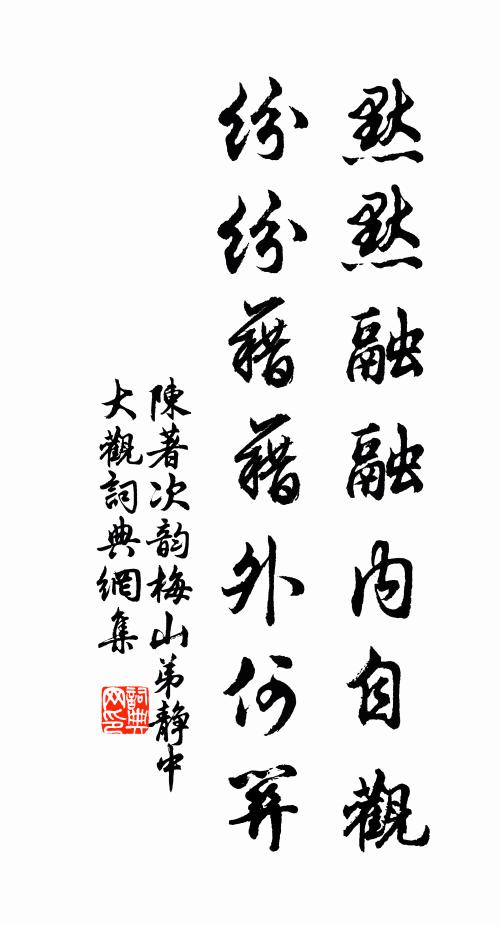 默默融融內自觀
紛紛藉藉外何筭
陳著次韵梅山弟靜中
大觀詞典網集
詞典网印